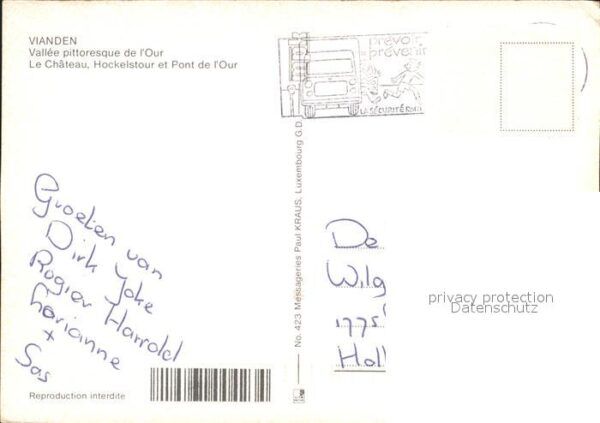 VIANDEN
Vallée pittoresque de l'Our
Le Château, Hockelstour et Pont de l'Our
prévoir
prévenir
LA SÉCURITÉ
No. 423 Messageries Paul KRAUS, Luxembourg G.D.
Groeten van
Dirk Joke
Rogier Harrold
Marianne
x
Sas
De
Wilg
1775
Hol
privacy protection
Datenschutz
Reproduction interdite